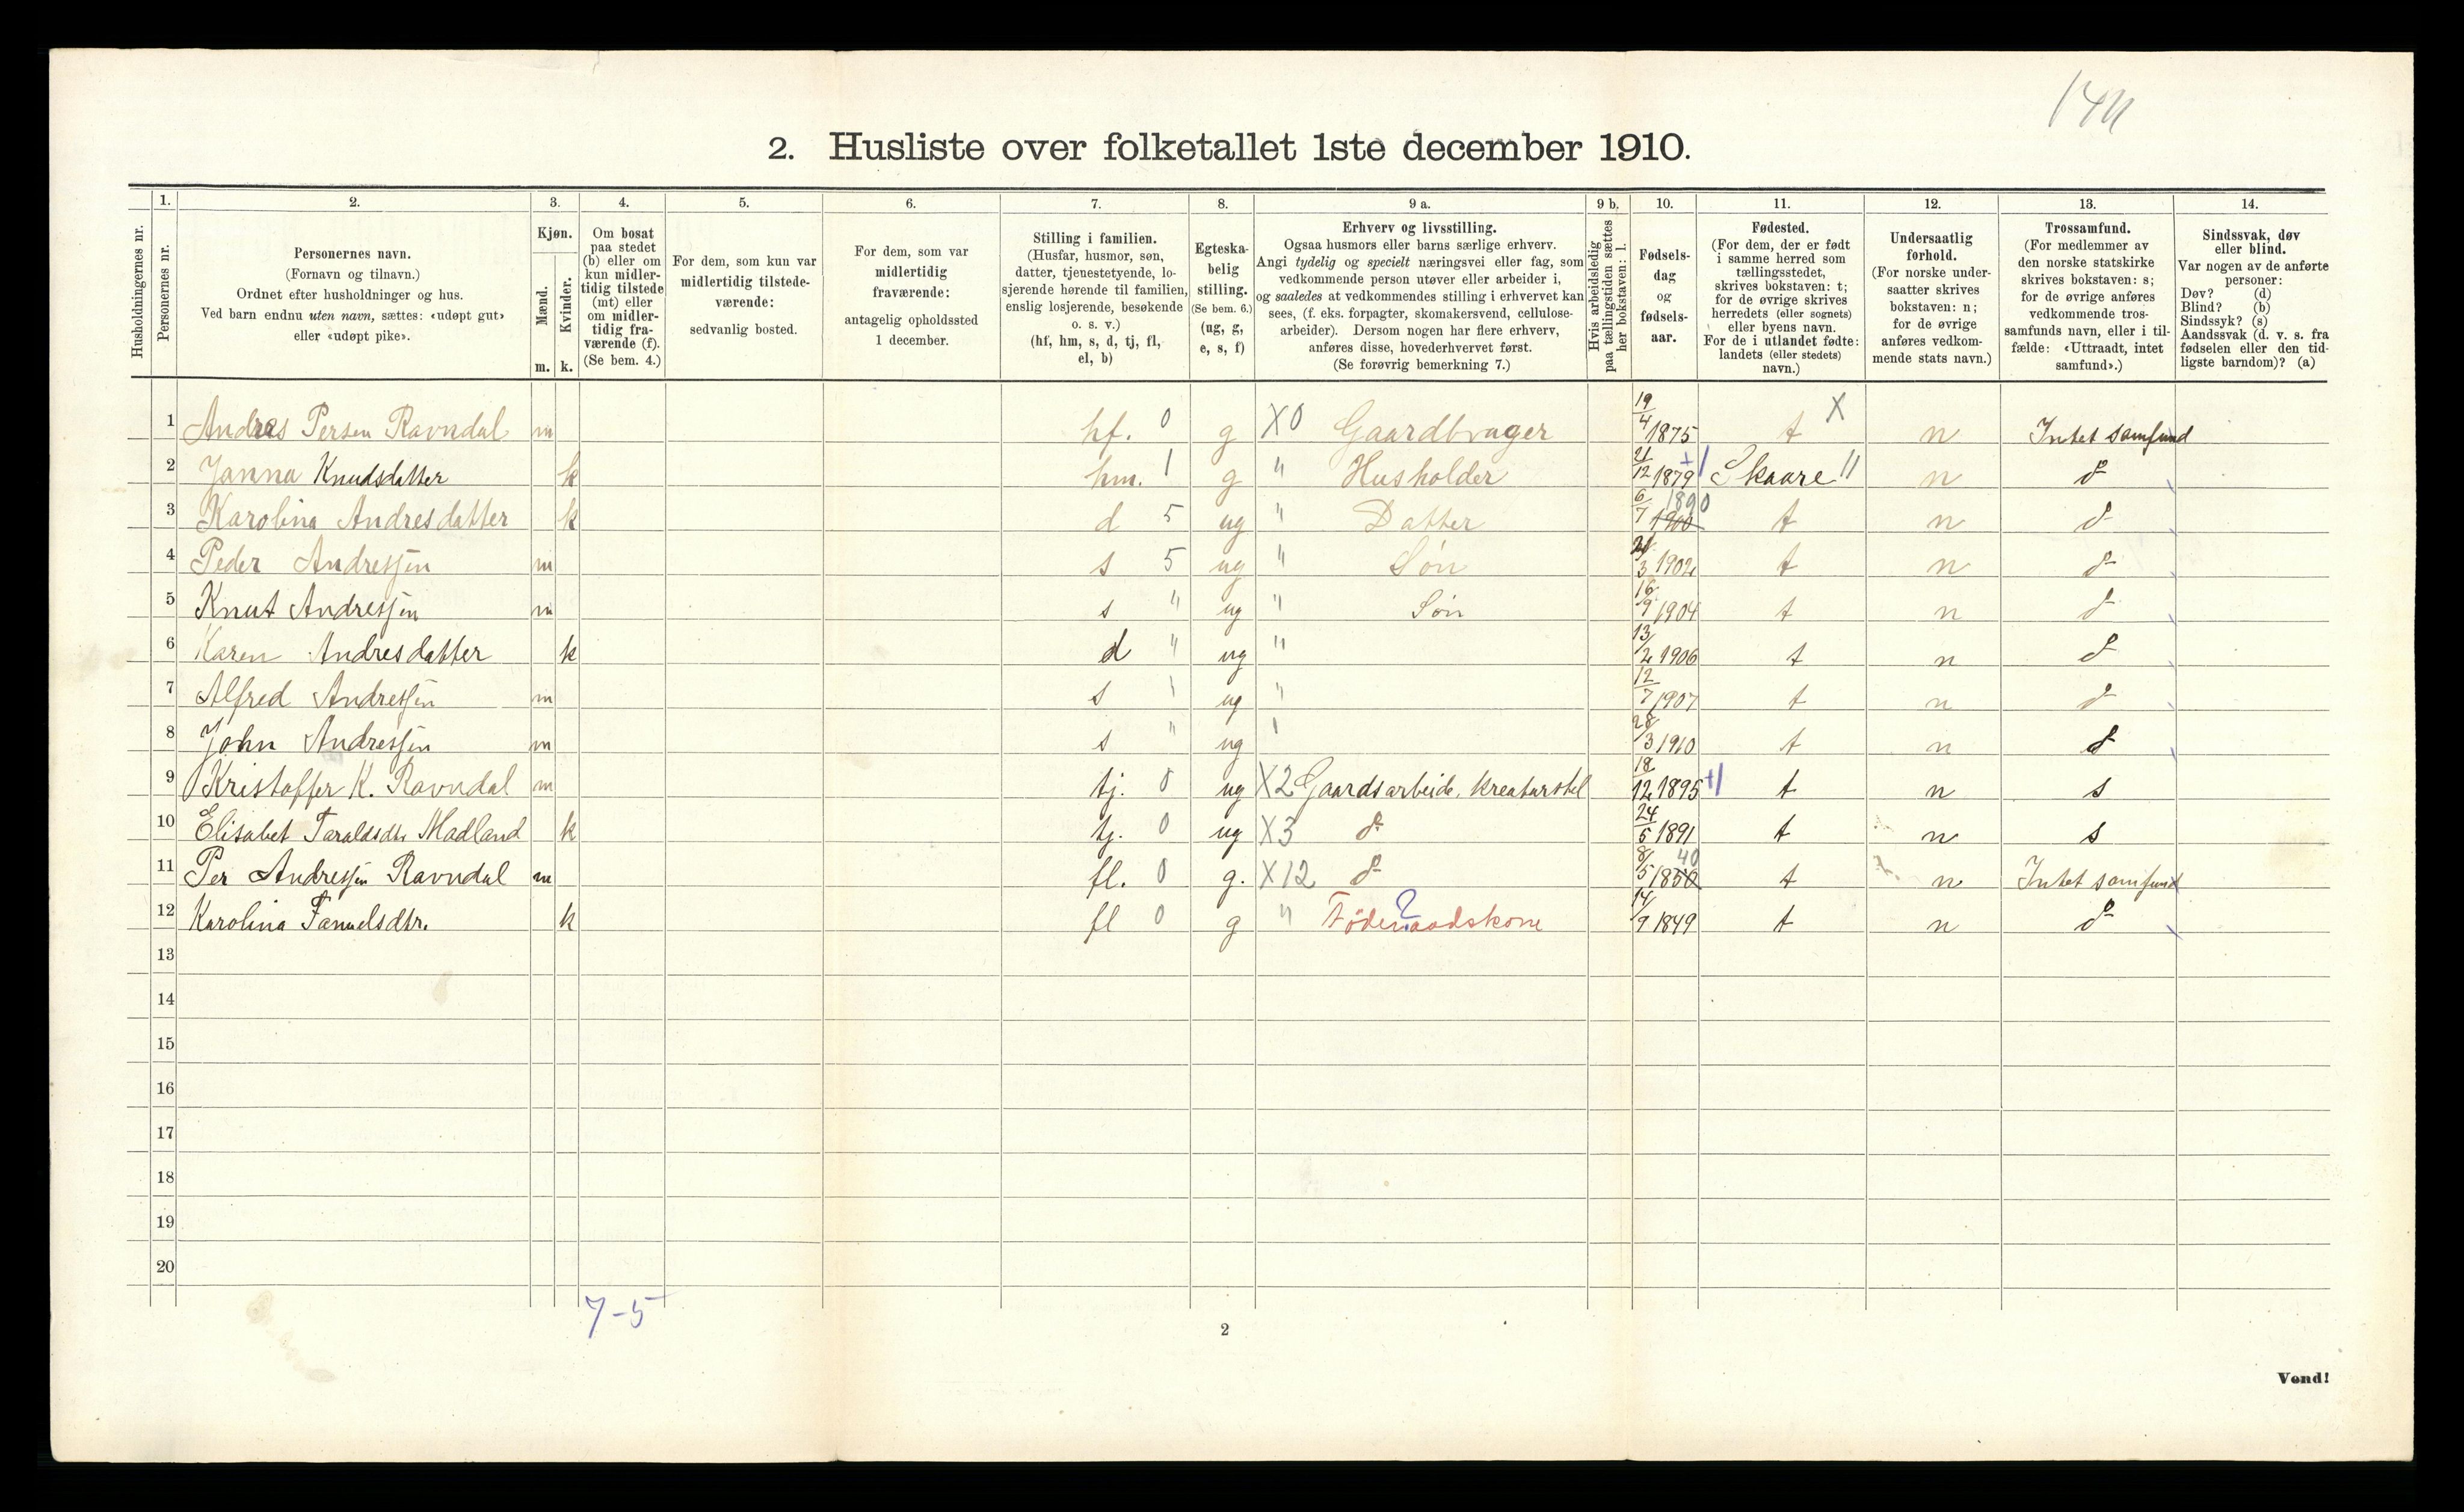 144
2. Husliste over folketallet 1ste december 1910.
Husholdningernes nr.
1. Personernes nr.
2. Personernes navn. (Fornavn og tilnavn.) Ordnet efter husholdninger og hus. Ved barn endnu uten navn, sættes: «udøpt gut» eller «udøpt pike».
3. Kjøn. Mænd. m. Kvinder. k.
4. Om bosat paa stedet (b) eller om kun midlertidig tilstede (mt) eller om midlertidig fraværende (f). (Se bem. 4.)
5. For dem, som kun var midlertidig tilstedeværende: sedvanlig bosted.
6. For dem, som var midlertidig fraværende: antagelig opholdssted 1 december.
7. Stilling i familien. (Husfar, husmor, søn, datter, tjenestetyende, losjerende hørende til familien, enslig losjerende, besøkende o. s. v.) (hf, hm, s, d, tj, fl, el, b)
8. Egteskabelig stilling. (Se bem. 6.) (ug, g, e, s, f)
9 a. Erhverv og livsstilling. Ogsaa husmors eller barns særlige erhverv. Angi tydelig og specielt næringsvei eller fag, som vedkommende person utøver eller arbeider i, og saaledes at vedkommendes stilling i erhvervet kan sees, (f. eks. forpagter, skomakersvend, cellulosearbeider). Dersom nogen har flere erhverv, anføres disse, hovederhvervet først. (Se forøvrig bemerkning 7.)
9 b. Hvis arbeidsledig paa tællingstiden sættes her bokstaven: l.
10. Fødselsdag og fødselsaar.
11. Fødested. (For dem, der er født i samme herred som tællingsstedet, skrives bokstaven: t; for de øvrige skrives herredets (eller sognets) eller byens navn. For de i utlandet fødte: landets (eller stedets) navn.)
12. Undersaatlig forhold. (For norske undersaatter skrives bokstaven: n; for de øvrige anføres vedkommende stats navn.)
13. Trossamfund. (For medlemmer av den norske statskirke skrives bokstaven: s; for de øvrige anføres vedkommende trossamfunds navn, eller i tilfælde: «Uttraadt, intet samfund».)
14. Sindssvak, døv eller blind. Var nogen av de anførte personer: Døv? (d) Blind? (b) Sindssyk? (s) Aandssvak (d. v. s. fra fødselen eller den tidligste barndom)? (a)
1 Andres Persen Ravndal m hf. 0 g X0 Gaardbruger 19/4 1875 t X n Intet samfund
2 Janna Knudsdatter k hm. 1 g " Husholder 21/12 1879 Skaare n do
3 Karolina Andresdatter k d 5 ug " Datter 6/7 1900 1890 t n do
4 Peder Andressen m s 5 ug " Søn 21/3 1902 t n do
5 Knut Andressen m s " ug " Søn 16/9 1904 t n do
6 Karen Andresdatter k d " ug " 13/2 1906 t n do
7 Alfred Andressen m s " ug " 12/7 1907 t n do
8 John Andressen m s " ug " 28/3 1910 t n do
9 Kristoffer K. Ravndal m tj. 0 ug X2 Gaardsarbeide, kreaturstel 18/12 1895 t n s
10 Elisabet Taraldsdtr Madland k tj. 0 ug X3 do 24/5 1891 t n s
11 Per Andressen Ravndal m fl. 0 g. X12 do 8/5 1850 40 t n Intet samfund
12 Karolina Samuelsdtr. k fl 0 g " Føderaadskone ? 14/9 1849 t n do
13
14
15
16
17
18
19
20
7-5
2
Vend!